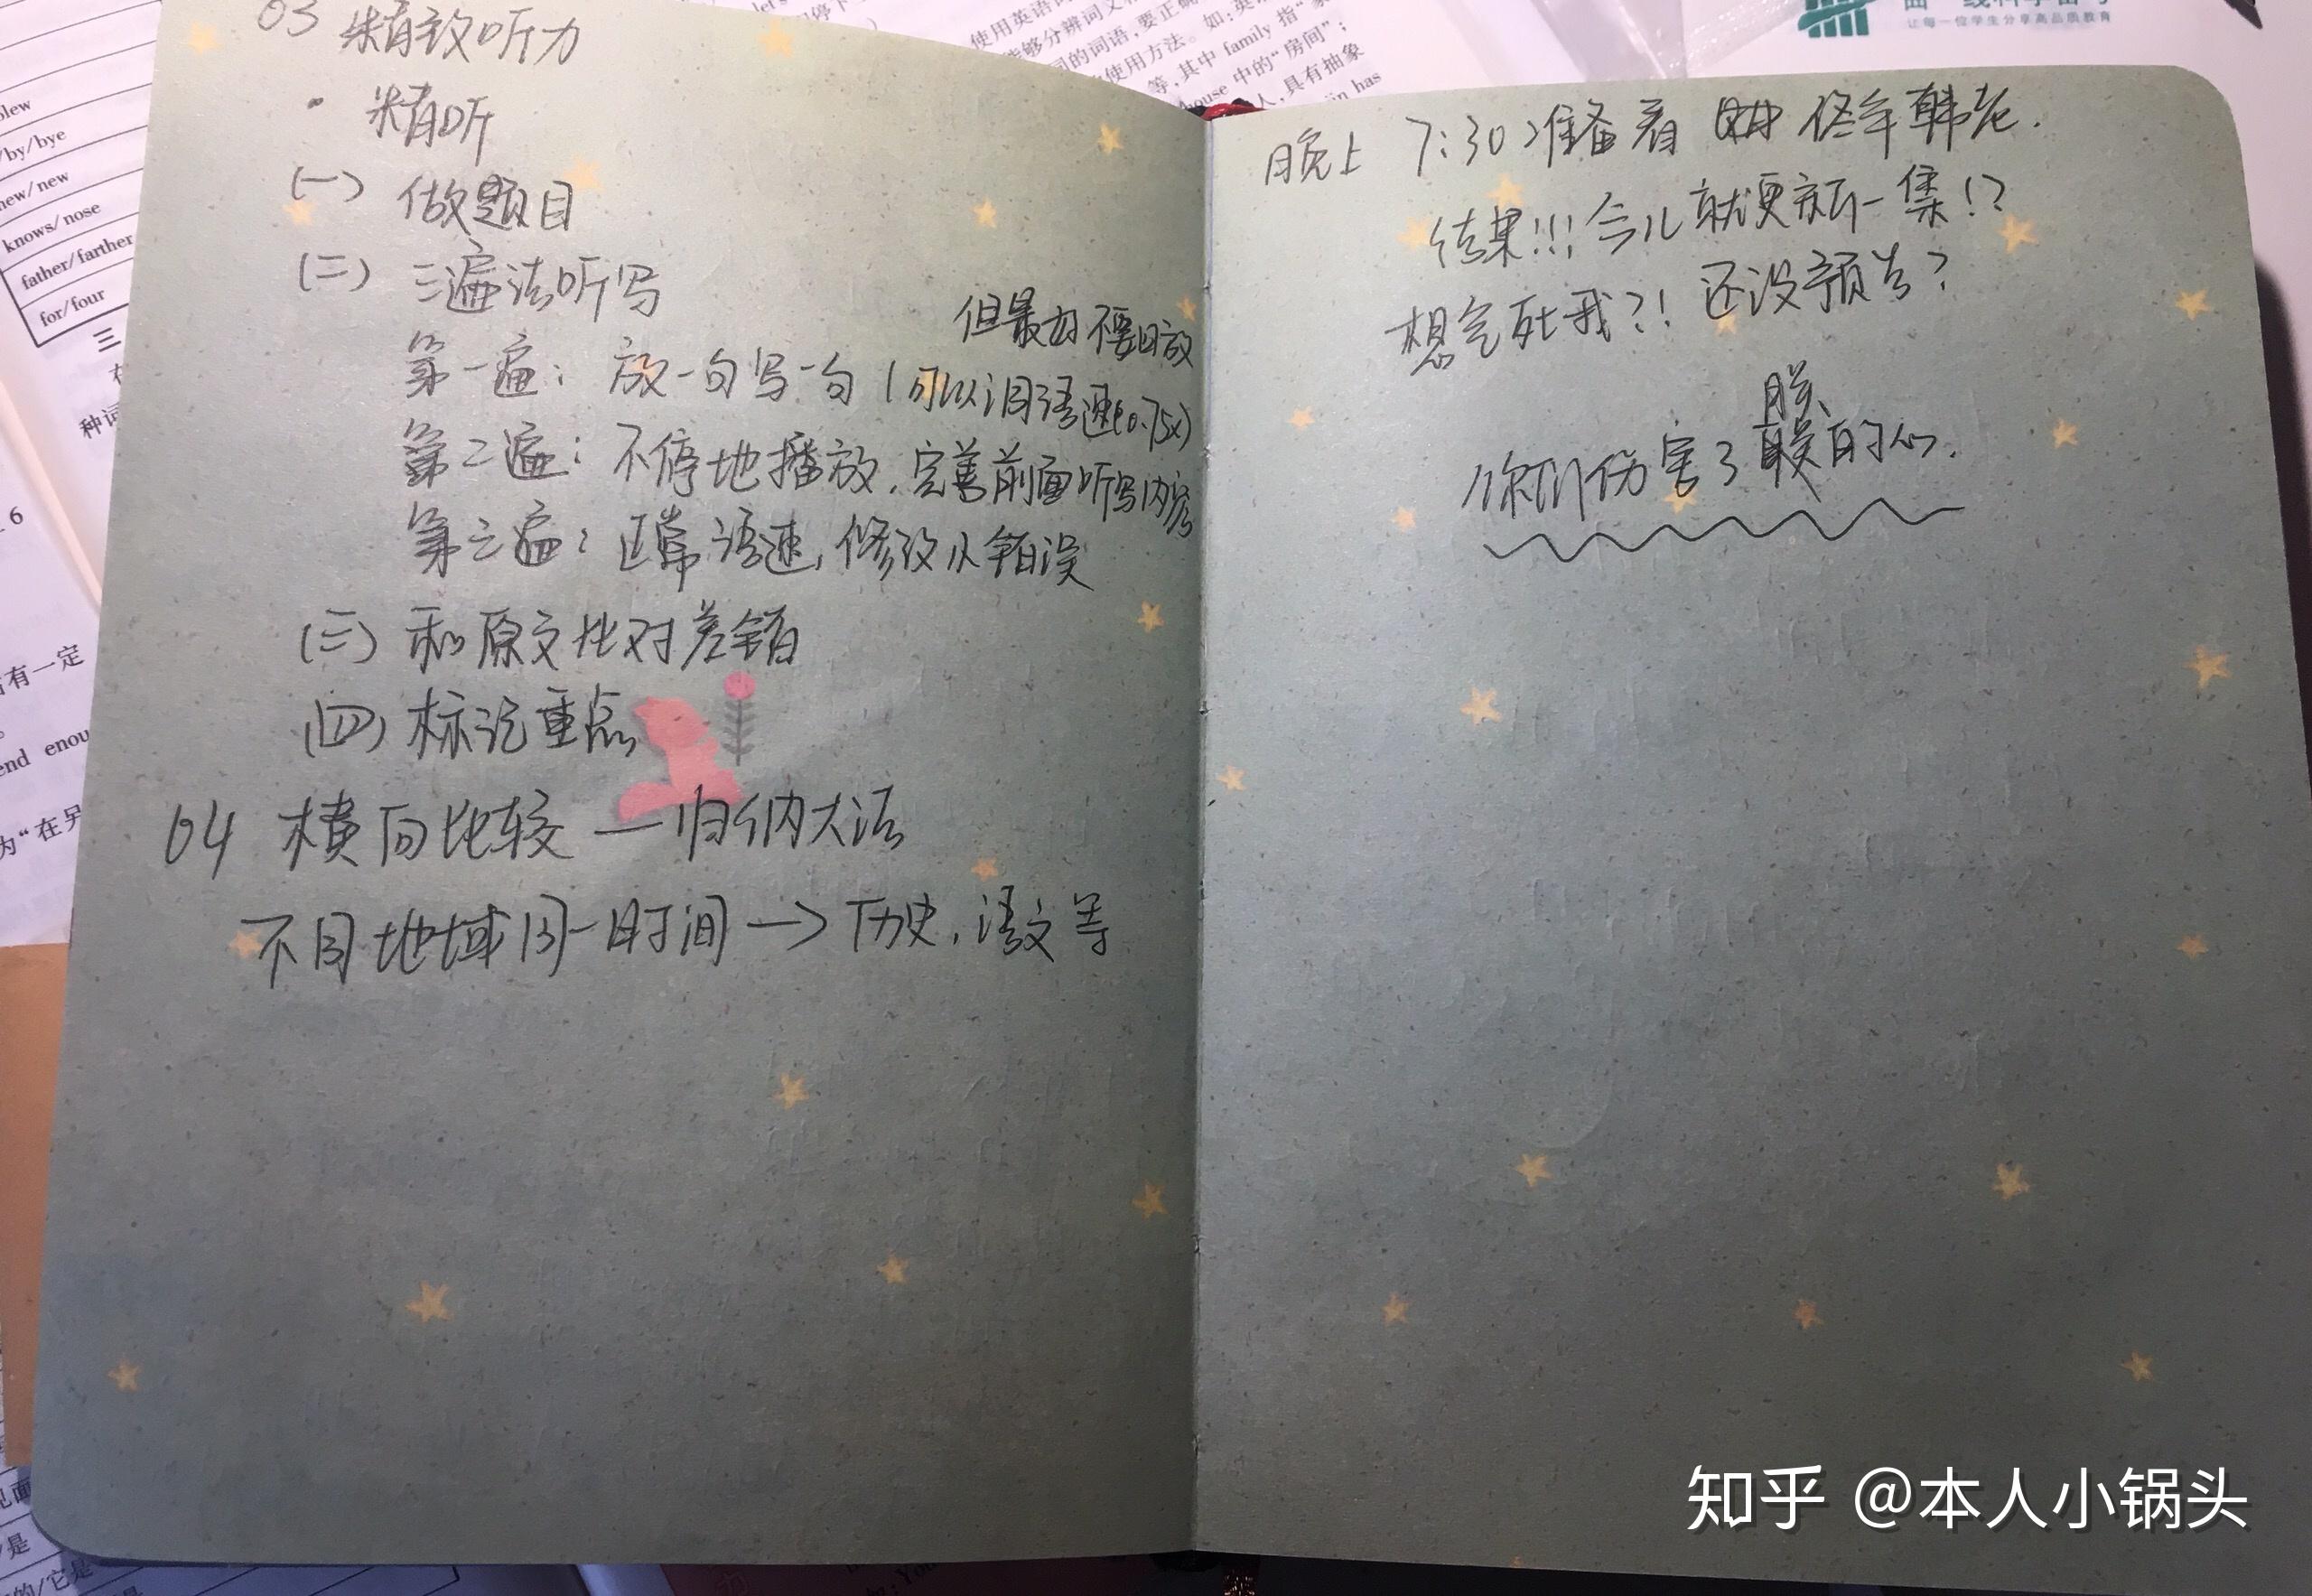 03 精致听力
· 精听
(一) 做题目
(二) 三遍法听写
但最好不要回放
第一遍: 放一句写一句(可以调语速(0.75x)
第二遍: 不停地播放,完善前面听写内容
第三遍: 正常语速,修改从错误
(三) 和原文比对差错
(四) 标记重点
04 横向比较 — 归纳大法
不同地域同一时间 → 历史,语文等
晚上 7:30 准备看
结果!!!今儿就更新一集!?
想气死我?!还没预告?
朕
你们伤害了的心.
知乎 @本人小锅头
blew
/by/bye
new/new
knows/nose
father/farther
for/four
三
种词
6
有一定
end enou
为“在另
使用英语词
能够分辨词义
同的词语,要正确
使用方法。如:英
等,其中 family 指“家
house 中的“房间”;
人,具有抽象
in has
让每一位学生分享高品质教育